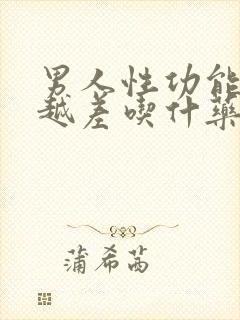 男人性功能
越差喫什藥
蒲希茜